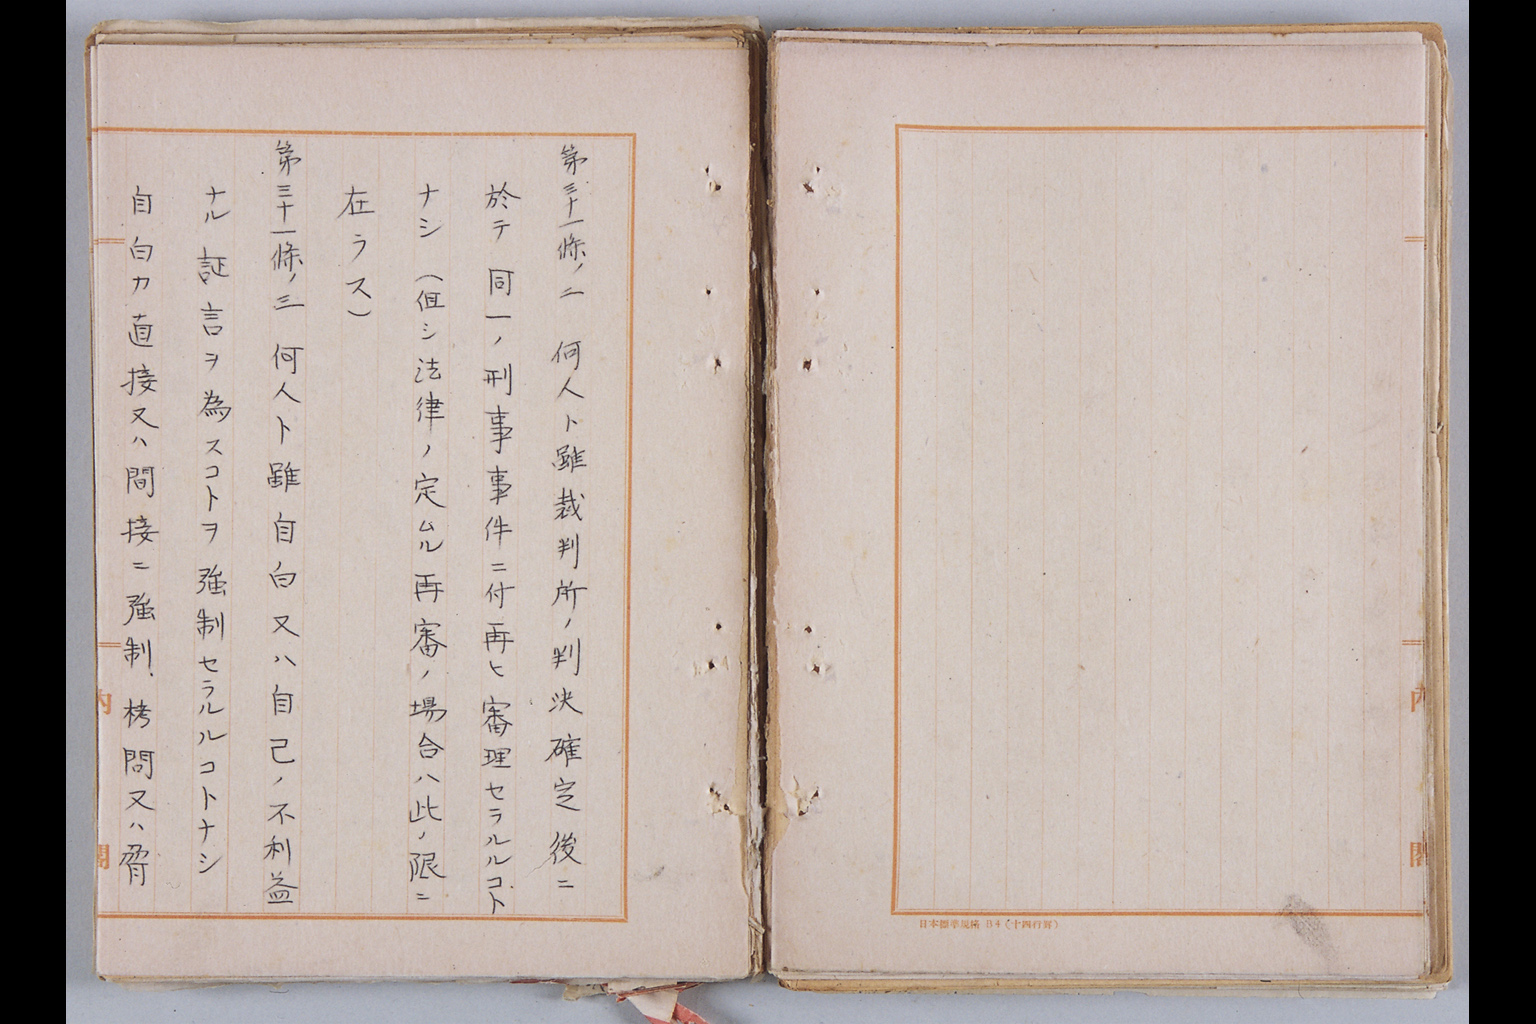 第三十一條ノ二　何人ト雖裁判所ノ判決確定後ニ
於テ同一ノ刑事事件ニ付再ヒ審理セラルルコト
ナシ（但シ法律ノ定ムル再審ノ場合ハ此ノ限ニ
在ラス）
第三十一條ノ三　何人ト雖自白又ハ自己ノ不利益
ナル証言ヲ為スコトヲ強制セラルルコトナシ
自白カ直接又ハ間接ニ強制、拷問又ハ脅
内閣
内閣
日本標準規格B4（十四行罫）